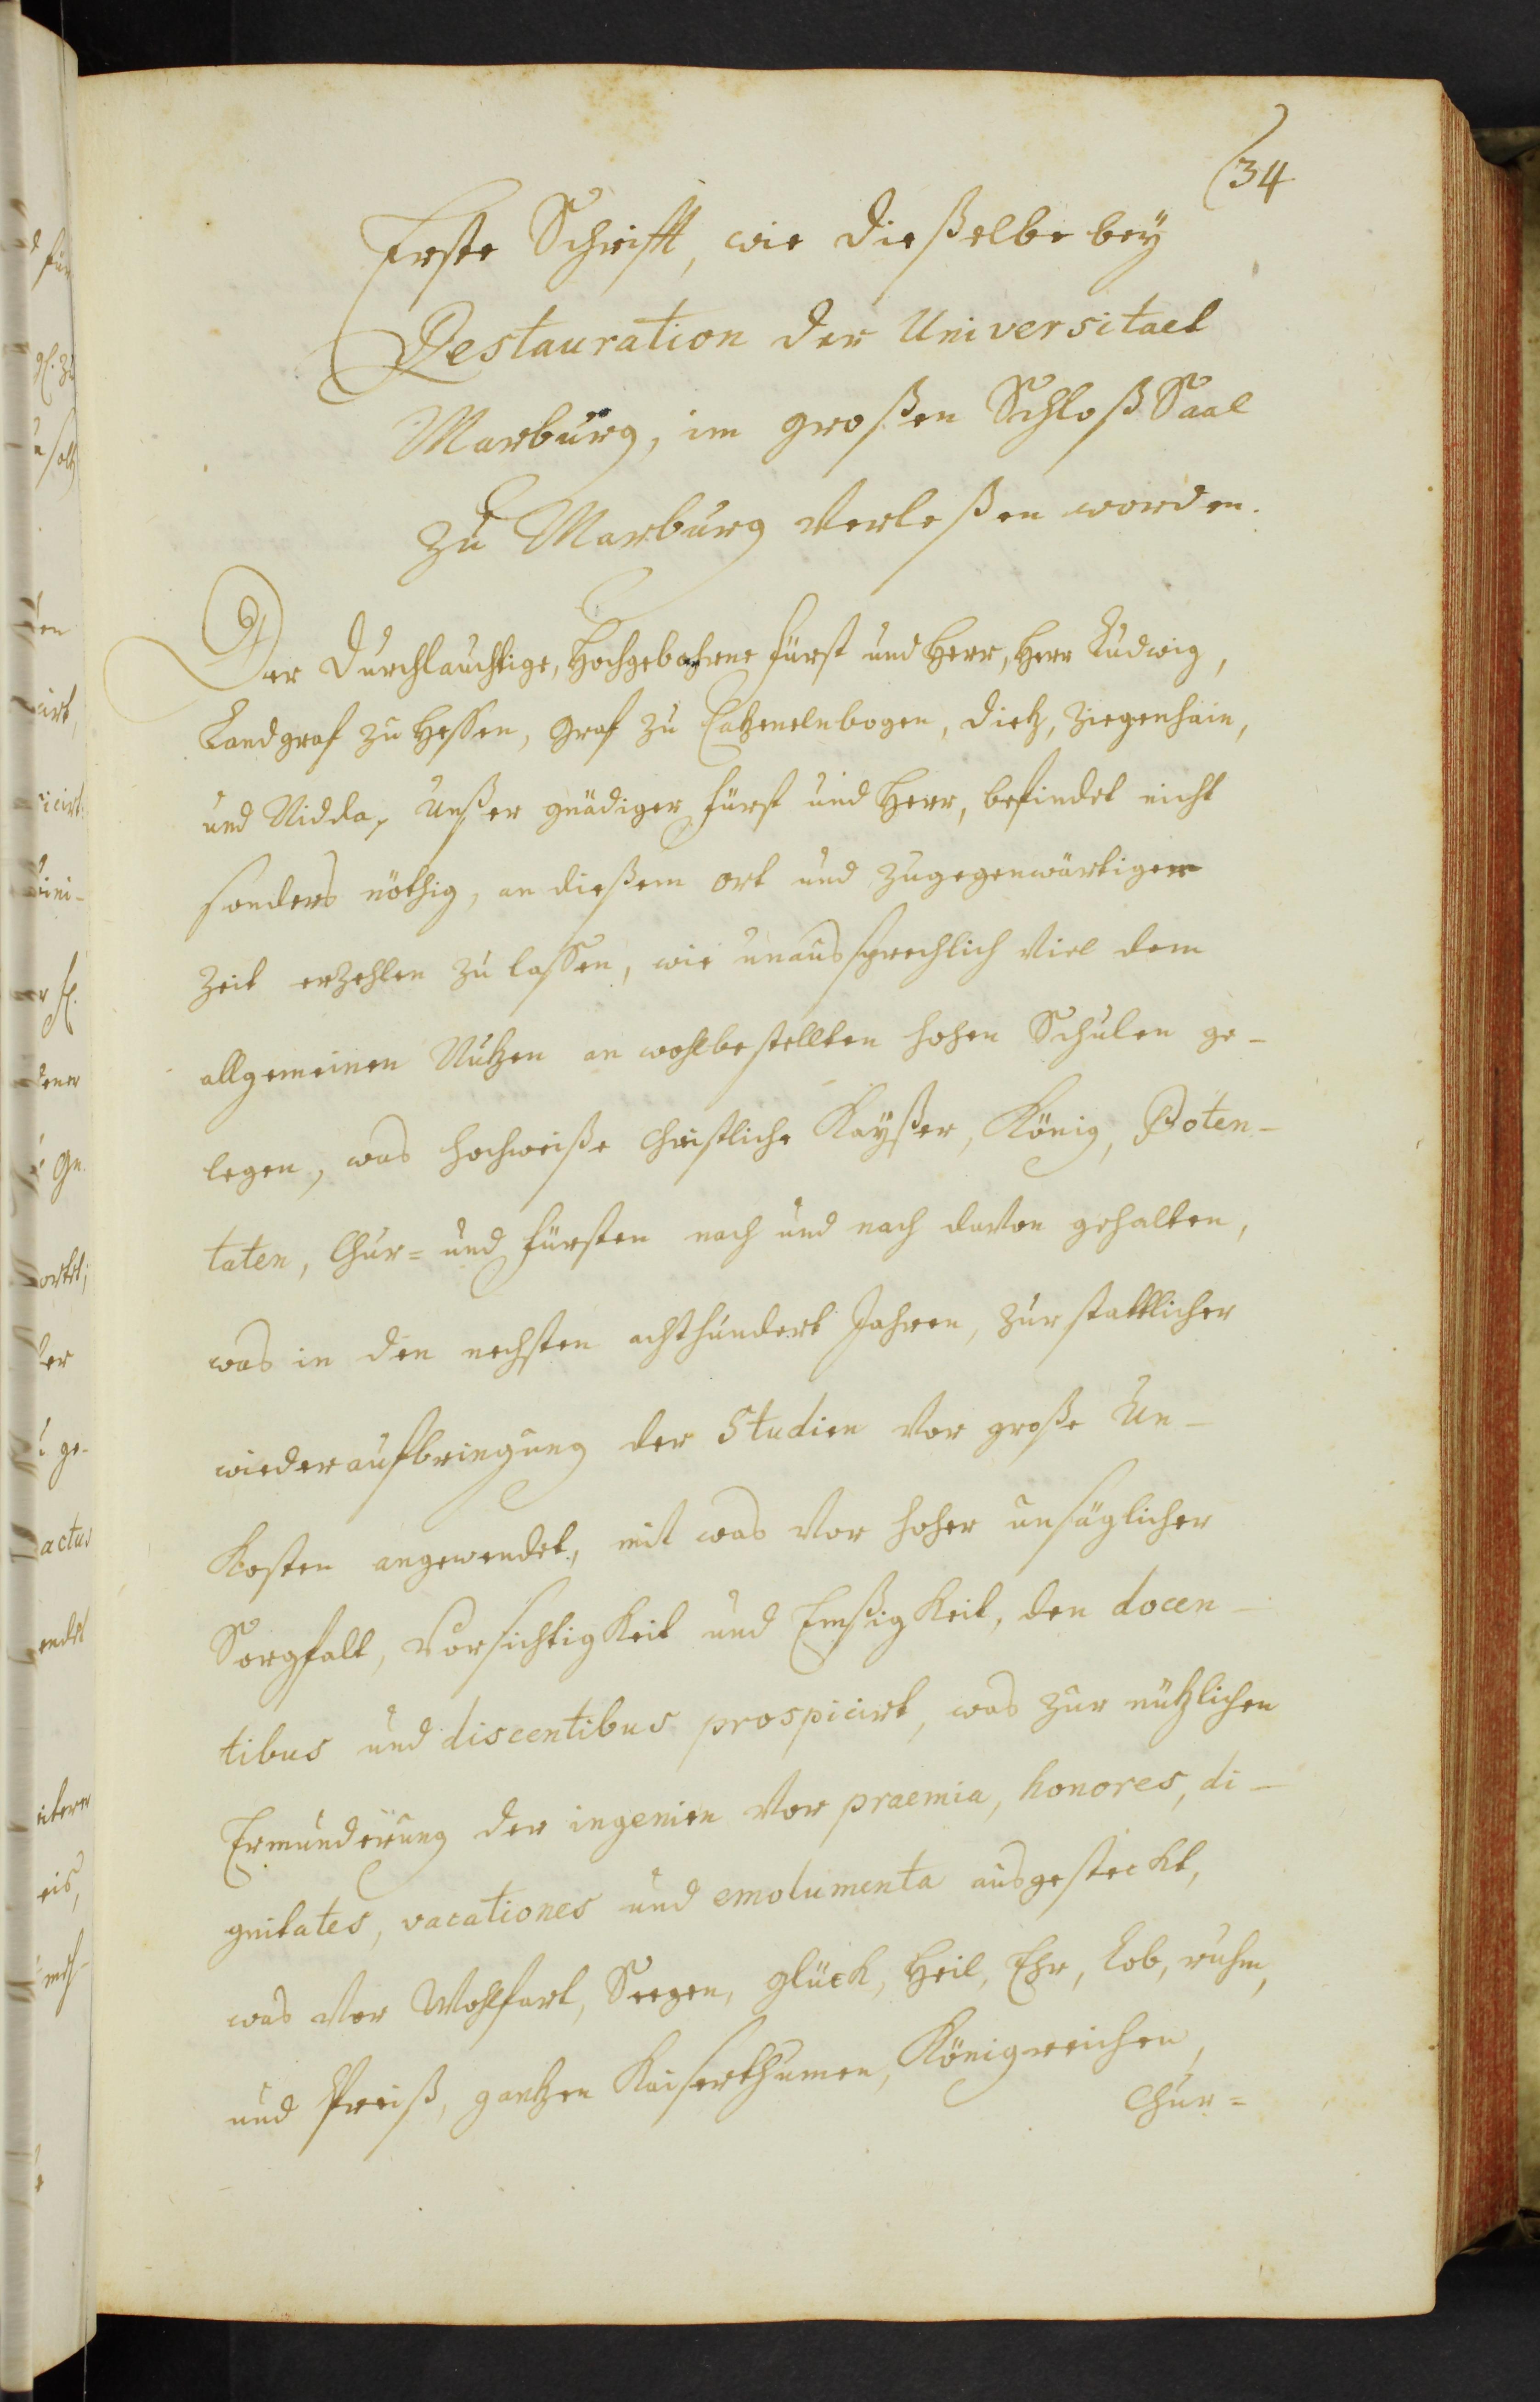 34
Erste Schrifft, wie dießelbe bey
Restauration der Universitaet
Marburg, im großen Schloß Saal
zu Marburg verleßen worden.
Der Durchlauchtige, Hochgebohrne Fürst und Herr, Herr Ludwig,
Landgraf zu Hessen, Graf zu Catzenelnbogen, Dietz, Ziegenhain,
und Nidda, Unßer gnädiger Fürst und Herr, befindet nicht
sonders nöthig, an dießem ort und zugegenwärtiger
Zeit erzehlen zu lassen, wie unaussprechlich viel dem
allgemeinen Nutzen an wohlbestellten hohen Schulen ge-
legen, was hochweiße Christliche Kayßer, König, Poten-
taten, Chur= und Fürsten nach und nach davon gehalten,
was in den nechsten achthundert Jahren, zur stattlicher
wiederaufbringung der Studien vor große Un-
Kosten angewendet, mit was vor hoher unsäglicher
Sorgfalt, Vorsichtigkeit und Emßigkeit, den docen-
tibus und discentibus prospicirt, was zur nützlichen
Ermunderung der ingenien vor praemia, honores, di-
gnitates, vacationes und emolumenta ausgesteckt,
was vor Wohlfart, Seegen, glück, Heil, Ehr, Lob, ruhm,
und Preiß, gantzen Kaiserthumen, Königreichen,
Chur=